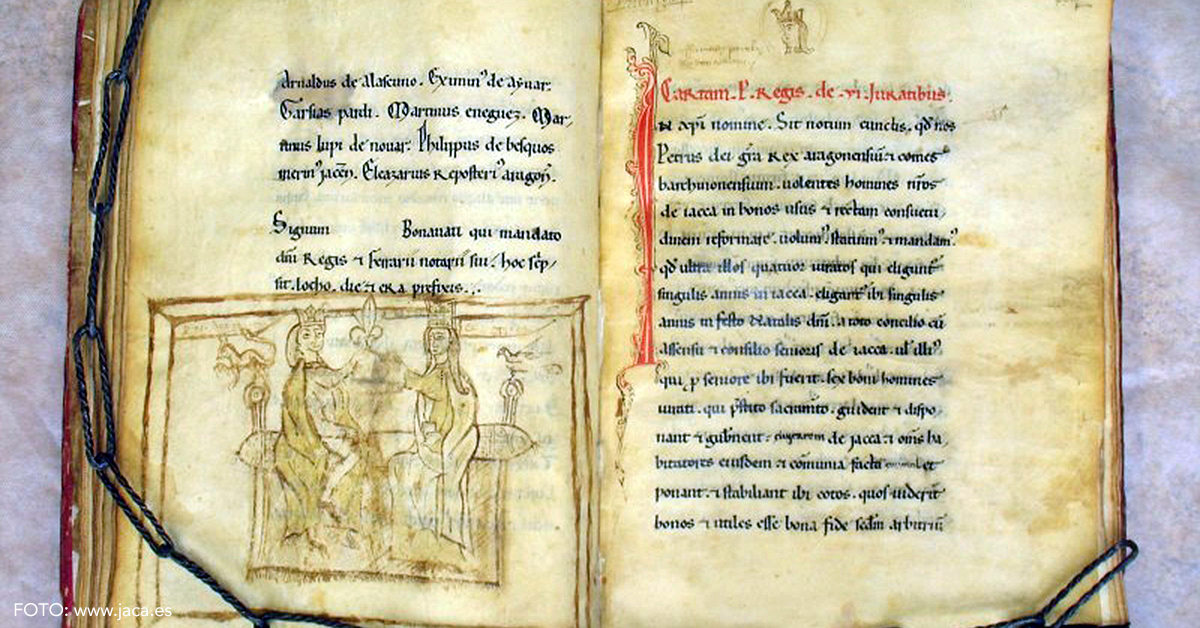 Arnaldus de alascuno. Eximin⁹ de aẏuar.
Garsias pardi. Martinus eneguez. Mar,
tinus lupi de nouar. Philippus de besquos
merin⁹ jacceñ. Eleazarius Reposteri⁹ aragoñ.
Signum Bonanati qui mandato
dñi Regis ⁊ ferrarii notarii sui. hoc sc̃p,
sit. locho. die ⁊ era prefixis.
Cartam. P. Regis. de. vi. Juratibus.
N xp̃i nomine. Sit notum cunctis. qd̃ nos
Petrus dei gr̃a Rex aragonensiũ ⁊ comes
barchinonensium. uolentes homines nr̃os
de iacca in bonos usus ⁊ rectam consuetu,
dinem reformare. uolum⁹ statuim⁹ ⁊ mandam⁹.
qd̃ ultra illos quatuor iuratos qui eligunt̃
singulis annis in iacca. eligant̃ ibi singulis
annis in festo Natalis dñi. a toto concilio cũ
assensu ⁊ consilio senioris de iacca. ul̃ illi⁹
qui p seniore ibi fuerit. sex boni homines
iurati. qui p̃stito sacram̃to. guident ⁊ dispo,
nant ⁊ gub̃nent. de jacca ⁊ om̃s ha,
bitatores eiusdem ⁊ cõmunia facta et
ponant. ⁊ stabiliant ibi cotos. quos uiderĩt
bonos ⁊ utiles esse bona fide sc̃dm arbitriũ
FOTO: www.jaca.es